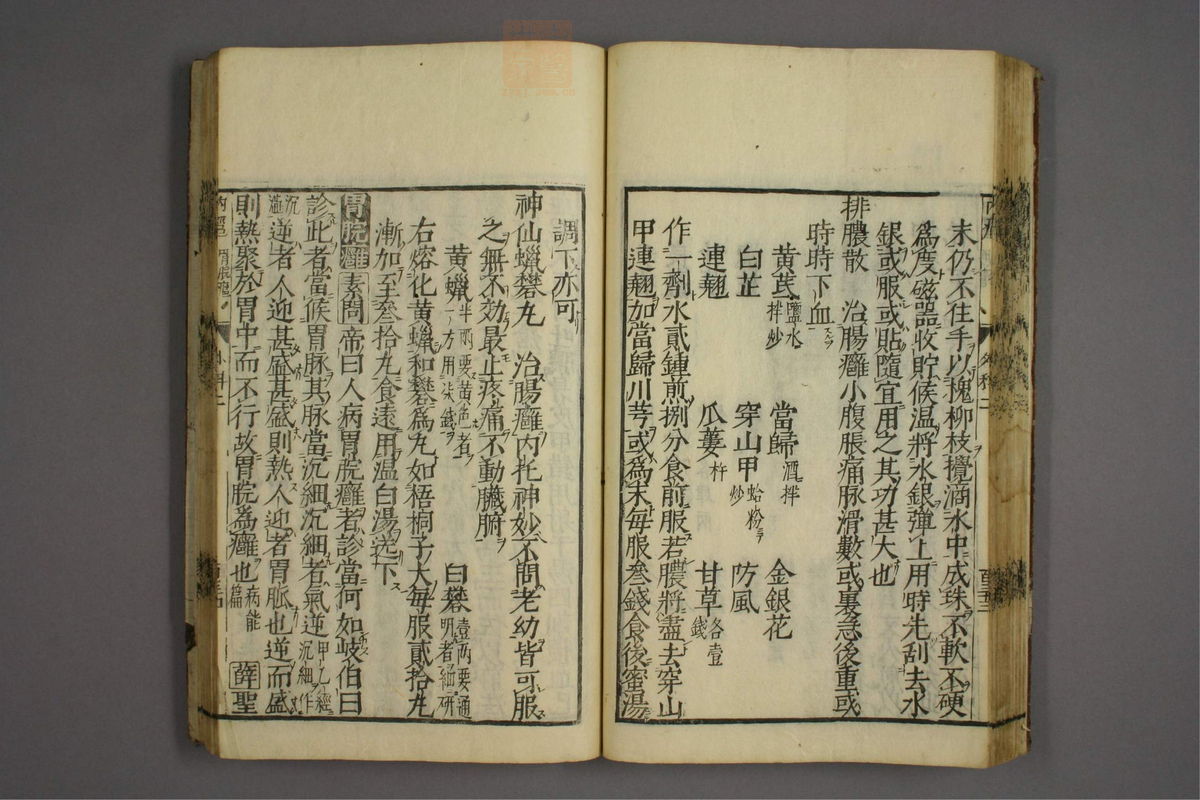 末仍不住手以槐柳枝攪滴水中成珠不軟不硬
爲度磁器收貯候温將水銀彈上用時先刮去水
銀或服或貼隨宜用之其功甚大也
排膿散 治腸癰小腹脹痛脉滑數或裏急後重或
時時下血
黄芪鹽水拌炒 當歸酒拌 金銀花
白芷 穿山甲蛤粉炒 防風
連翹 瓜蔞杵 甘草各壹錢
作一劑水貳鍾煎捌分食前服若膿將盡去穿山
甲連翹加當歸川芎或爲末每服叁錢食後蜜湯
調下亦可
神仙蠟礬丸 治腸癰内托神妙不問老幼皆可服
之無不効最止疼痛不動臟腑
黄蠟半兩要黄色者一方用柒錢 白礬壹兩要通明者細研
右熔化黄蠟和礬爲丸如梧桐子大每服貳拾丸
漸加至叁拾丸食遠用温白湯送下
胃脘癰 素問帝曰人病胃脘癰者診當何如岐伯曰
診此者當候胃脉其脉當沉細沉細者氣逆甲乙經沉細作
沉濇逆者人迎甚盛甚盛則熱人迎者胃脈也逆而盛
則熱聚於胃中而不行故胃脘爲癰也病能篇 薛聖
外科二